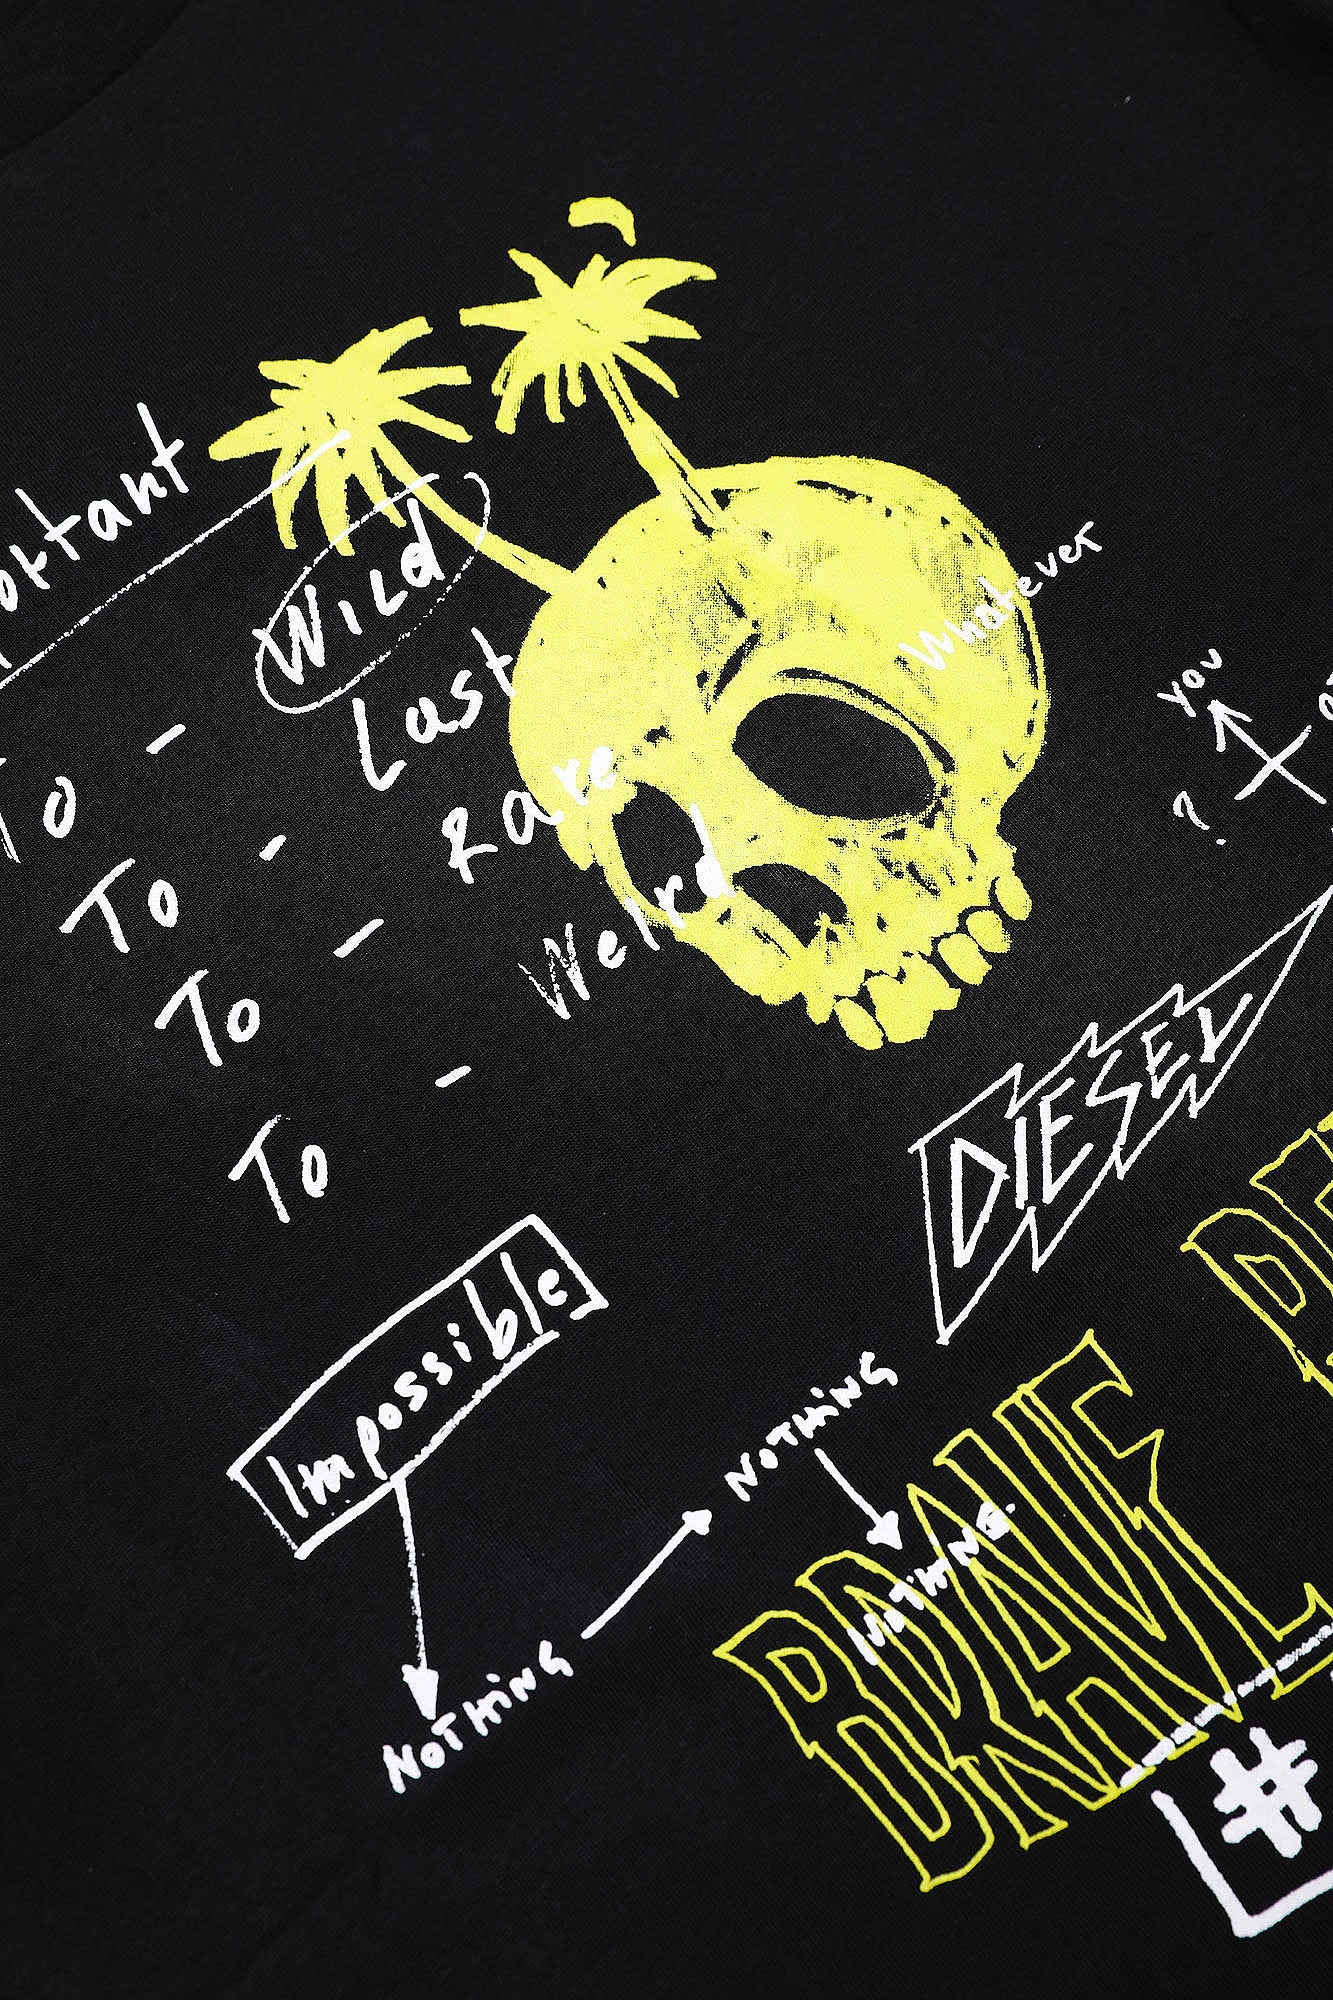 Wild
To - Last
To - Rare
To - Weird
To -
Whatever
you
?
DIESEL
Impossible
NOTHING
NOTHING
NOTHING.
BRAVE
#